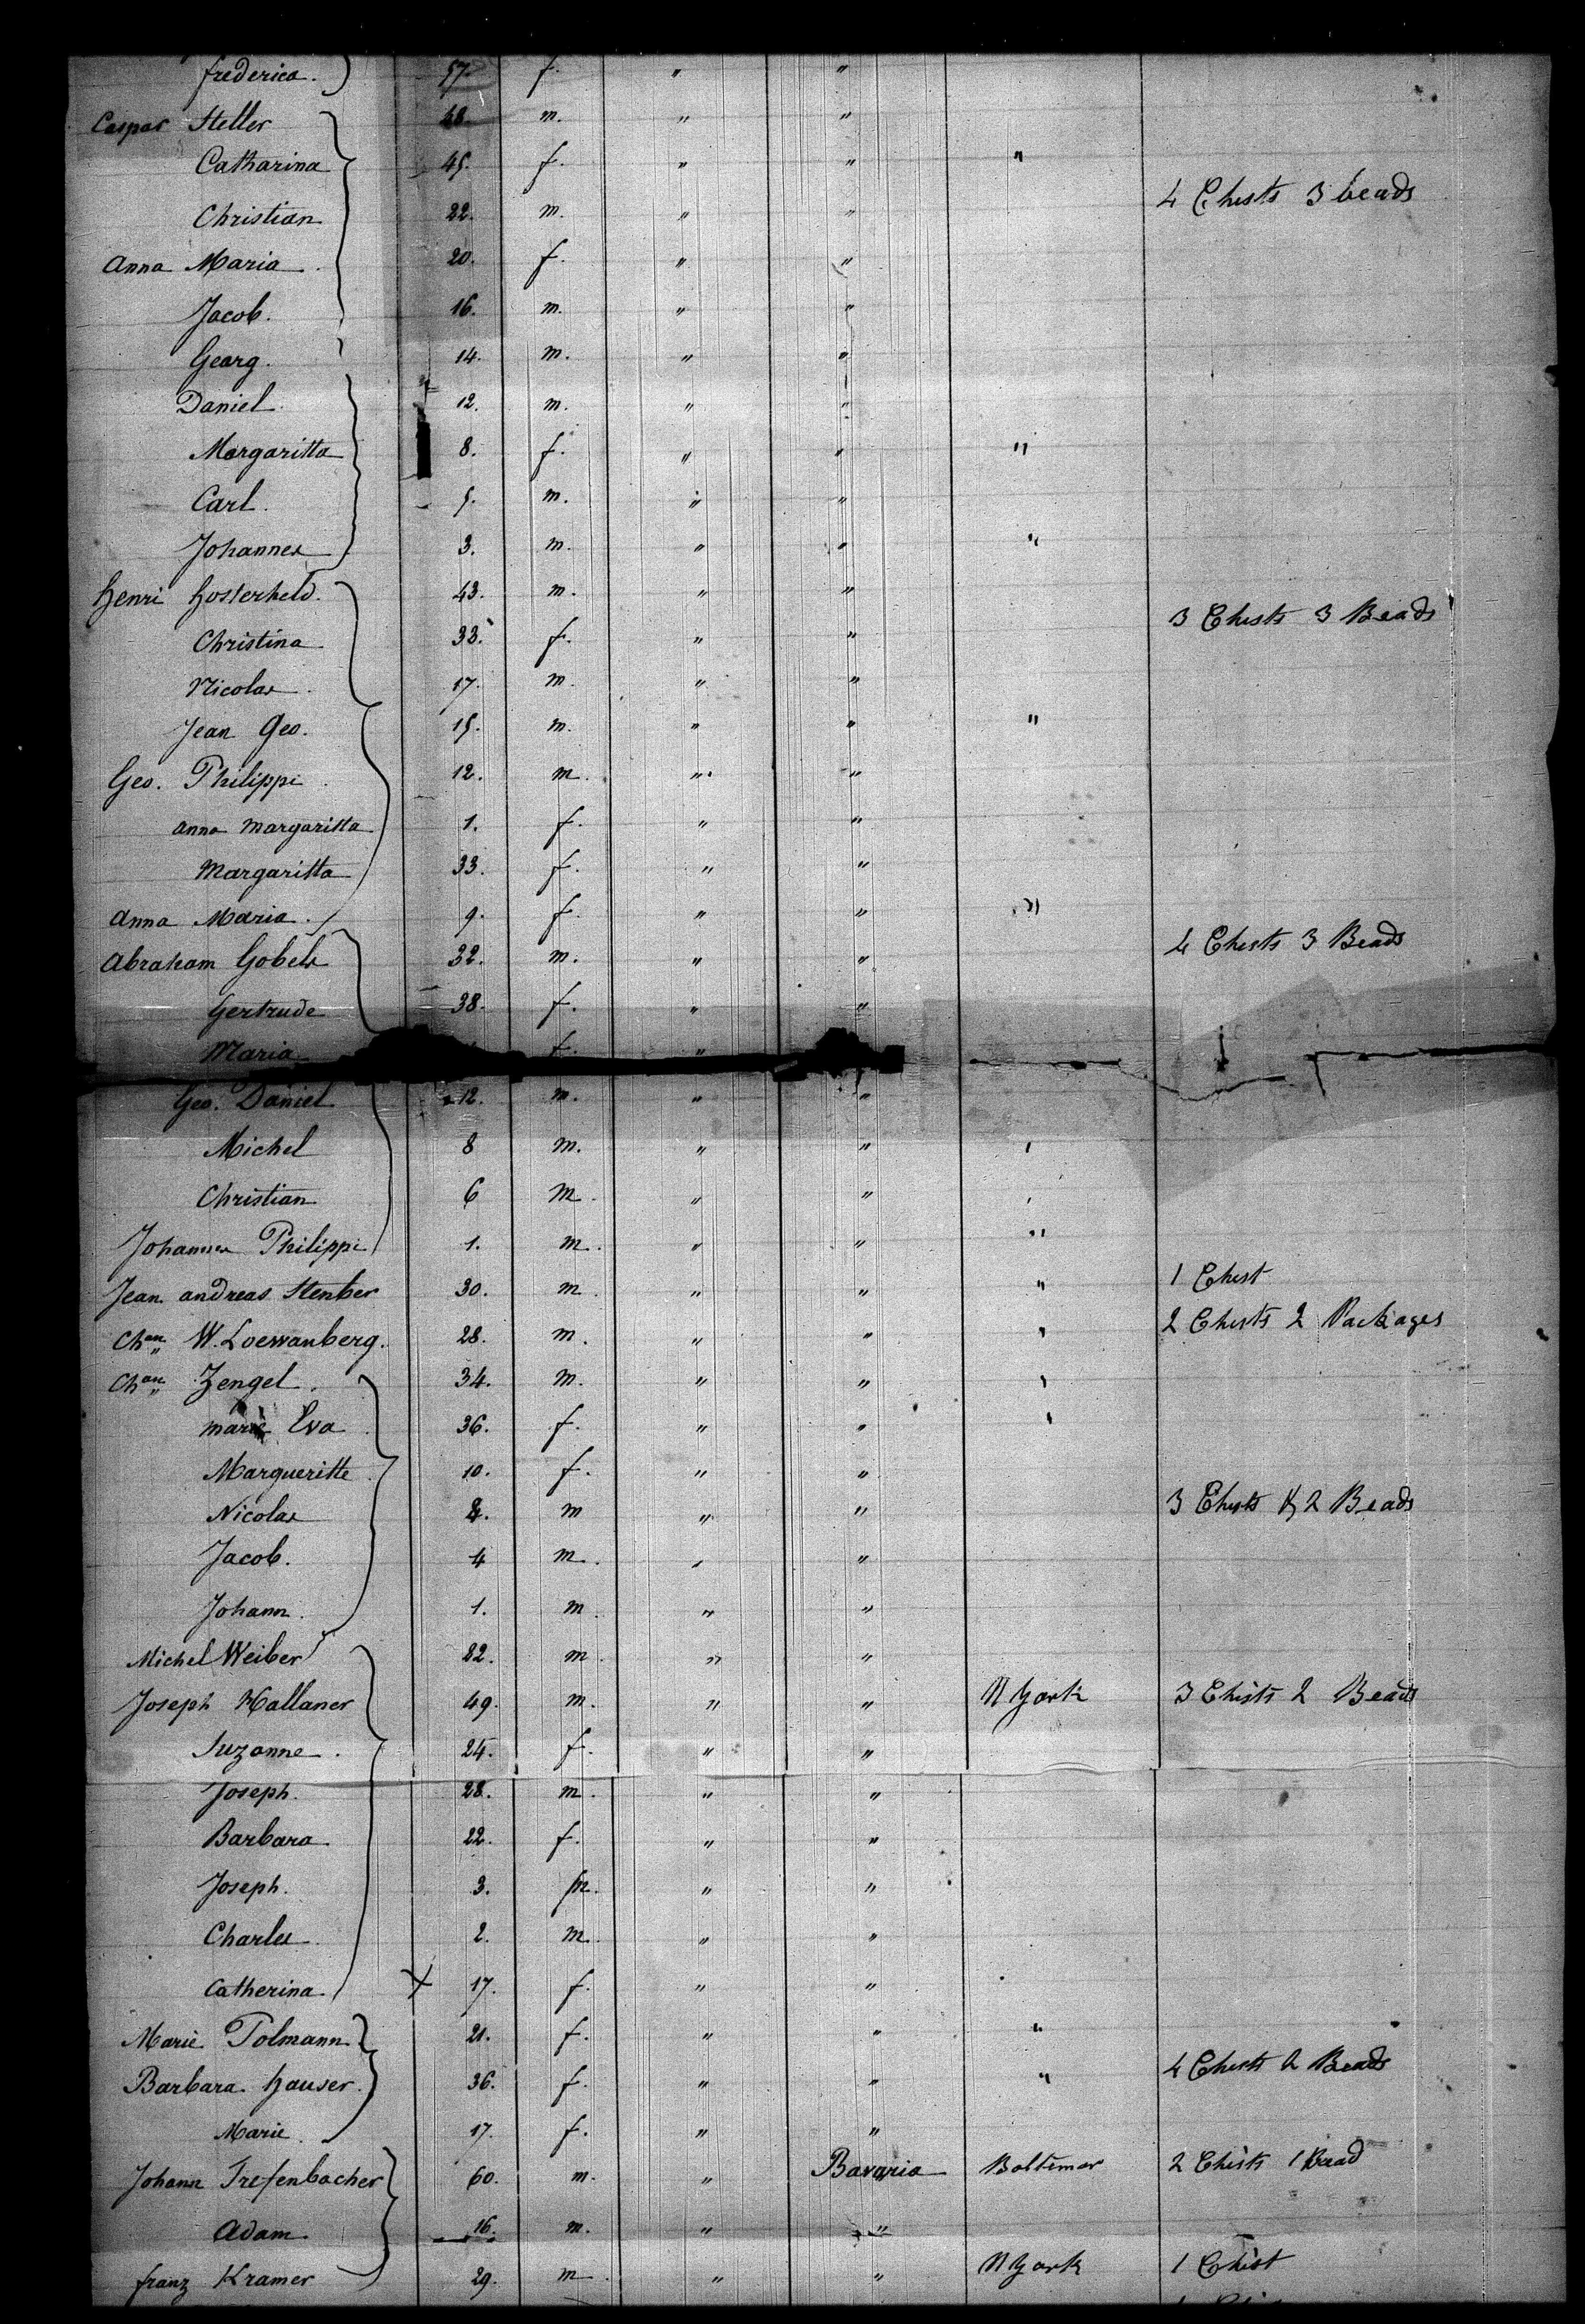 frederica. 57. f. " "
Caspar Steller 48. m. " "
Catharina 45. f. " " "
4 Chests 3 beads
Christian 22. m. " "
Anna Maria 20. f. " "
Jacob. 16. m. " "
Georg. 14. m. " "
Daniel 12. m. " "
Margaritta 8. f. " " "
Carl. 5. m. " "
Johannes 3. m. " " "
Henri Hosterheld. 43. m. " "
3 Chests 3 Beads
Christina 33. f. " "
Nicolas 17. m. " "
Jean Geo. 15. m. " " "
Geo. Philippi 12. m. " "
Anna Margaritta 1. f. " "
Margaritta 33. f. " "
Anna Maria. 9. f. " " "
4 Chests 3 Beads
Abraham Gobels 32. m. " "
Gertrude 38. f. " "
Maria f. "
Geo. Daniel 12. m. " "
Michel 8 m. " " "
Christian 6 m. " " "
Johannes Philippi 1. m. " " "
Jean Andreas Stenber 30. m. " " " 1 Chest
Chan W. Loewanberg. 28. m. " " " 2 Chests 2 Packages
Chan Zengel. 34. m. " " "
Marie Eva 36. f. " " "
Margueritte 10. f. " "
Nicolas 8. m " " 3 Chests & 2 Beads
Jacob. 4 m. " "
Johann. 1. m. " "
Michel Weiber 22. m. " "
Joseph Hallaner 49. m. " " N York 3 Chists 2 Beads
Suzanne. 24. f. " "
Joseph. 28. m. " "
Barbara 22. f. " "
Joseph. 3. m. " "
Charles 2. m. " "
Catherina. X 17. f. " "
Marie Tolmann 21. f. " " "
4 Chests 2 Beads
Barbara Hauser. 36. f. " " "
Marie 17. f. " "
Johann Trefenbacher 60. m. " Bavaria Baltimor 2 Chists 1 Bead
Adam. 16. m. " "
franz Kramer 29. m " " N York 1 Chist